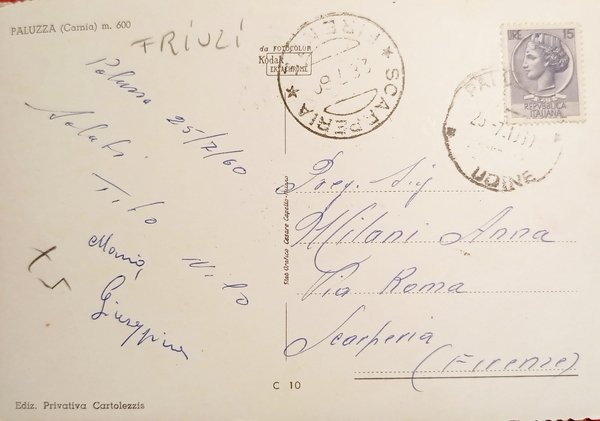 PALUZZA (Carnia) m. 600
FRIULI
da FOTOCOLOR
Kodak
EKTACHROME
Paluzza 25/7/60
Saluti
Tito Nilo
Maria,
Giuseppina
X5
Ediz. Privativa Cartolezzis
C 10
Stab. Grafico Cesare Capello-Milano
SCARPERIA
LIRE 15
REPVBBLICA
ITALIANA
UDINE
Preg. Sig
Milani Anna
Via Roma
Scarperia
(Firenze)